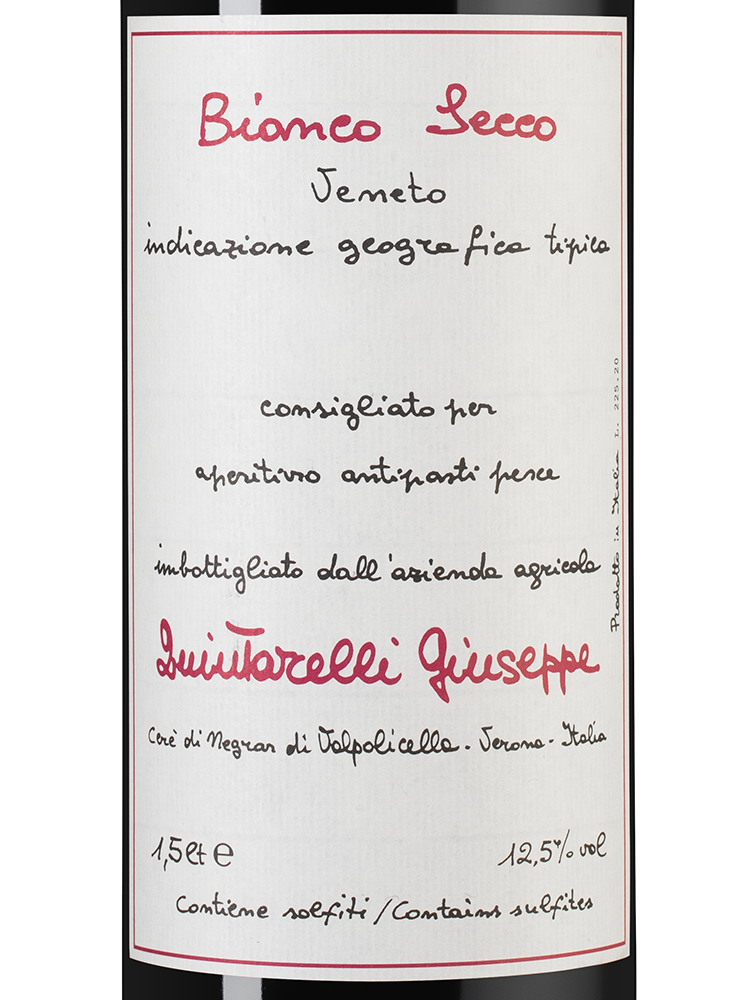 Bianco Secco
Veneto
indicazione geografica tipica
consigliato per
aperitivo antipasti pesce
imbottigliato dall'azienda agricola
Quintarelli Giuseppe
Cerè di Negrar di Valpolicella - Verona - Italia
1,5 lt e
12,5% vol
Contiene solfiti / Contains sulfites
Prodotto in Italia L. 225.20